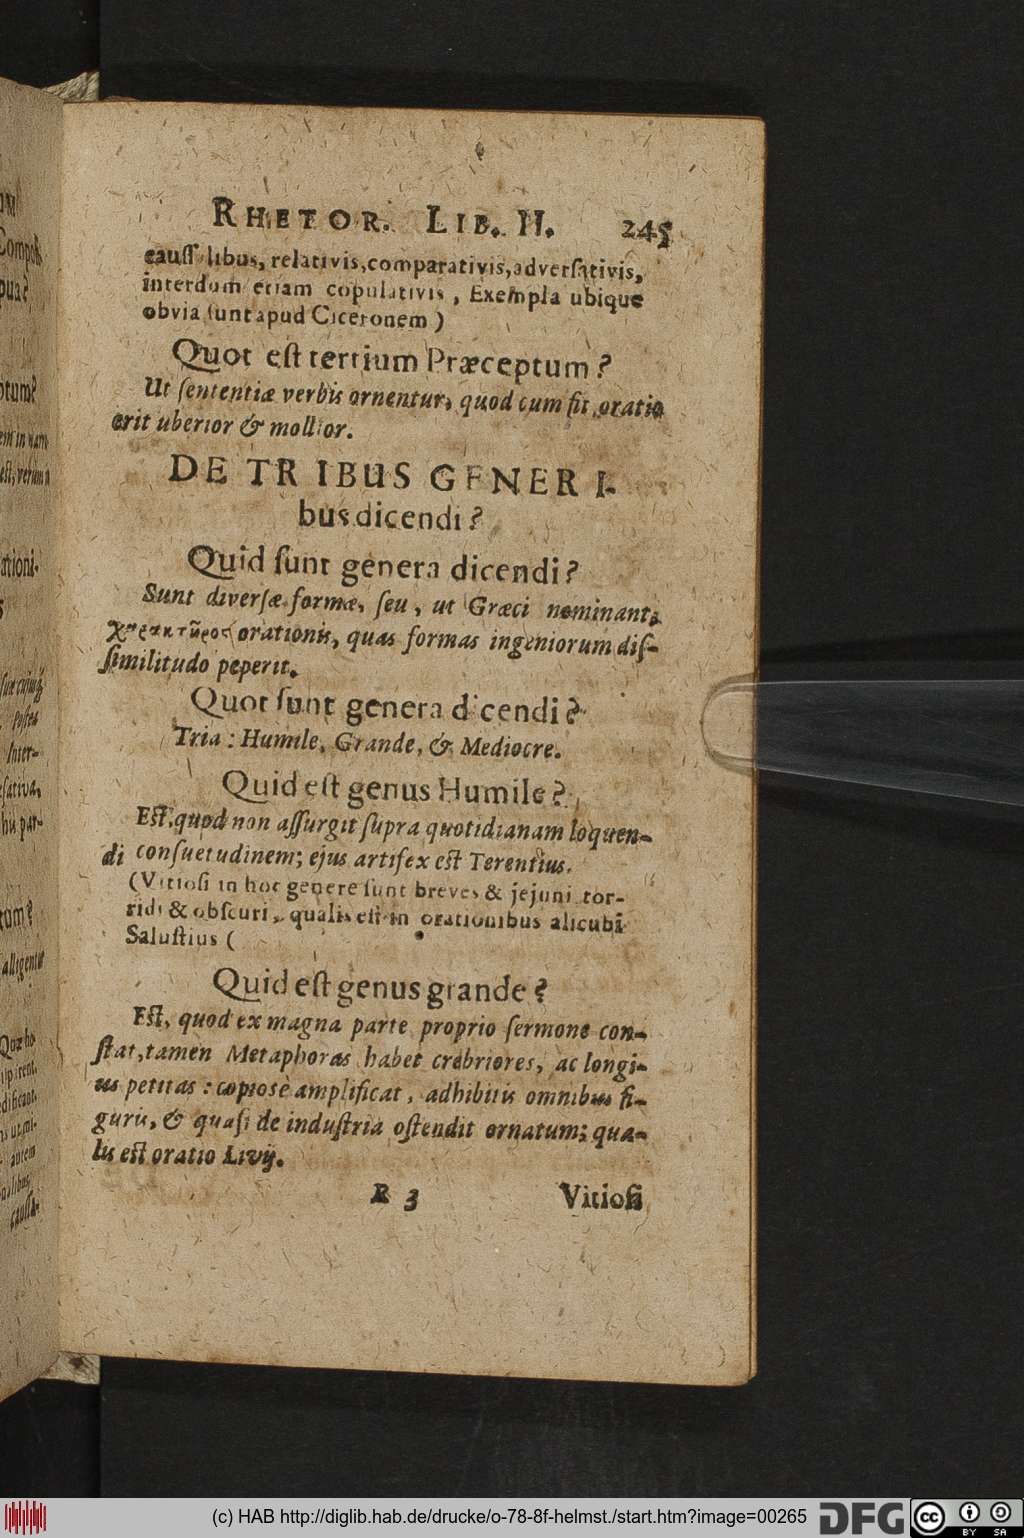 RHETOR. LIB. II. 245
cauſſalibus, relativis, comparativis, adverſativis,
interdum etiam copulativis, Exempla ubique
obvia ſunt apud Ciceronem)
Quot eſt tertium Præceptum?
Ut ſententiæ verbis ornentur, quod cum fit, oratio
erit uberior & mollior.
DE TRIBUS GENERI-
bus dicendi?
Quid ſunt genera dicendi?
Sunt diverſæ formæ, ſeu, ut Græci nominant,
orationis, quas formas ingeniorum diſ-
ſimilitudo peperit.
Quot ſunt genera dicendi?
Tria: Humile, Grande, & Mediocre.
Quid eſt genus Humile?
Eſt, quod non aſſurgit ſupra quotidianam loquen-
di conſuetudinem; ejus artifex eſt Terentius.
(Vitioſi in hoc genere ſunt breves & jejuni tor-
ridi & obſcuri, qualis eſt in orationibus alicubi
Saluſtius (
Quid eſt genus grande?
Eſt, quod ex magna parte proprio ſermone con-
ſtat, tamen Metaphoras habet crebriores, ac longi-
us petitas: copiosè amplificat, adhibitis omnibus fi-
guris, & quaſi de induſtria oſtendit ornatum; qua-
lis eſt oratio Livij.
R 3 Vitioſi
(c) HAB http://diglib.hab.de/drucke/o-78-8f-helmst./start.htm?image=00265
DFG
cc
BY SA